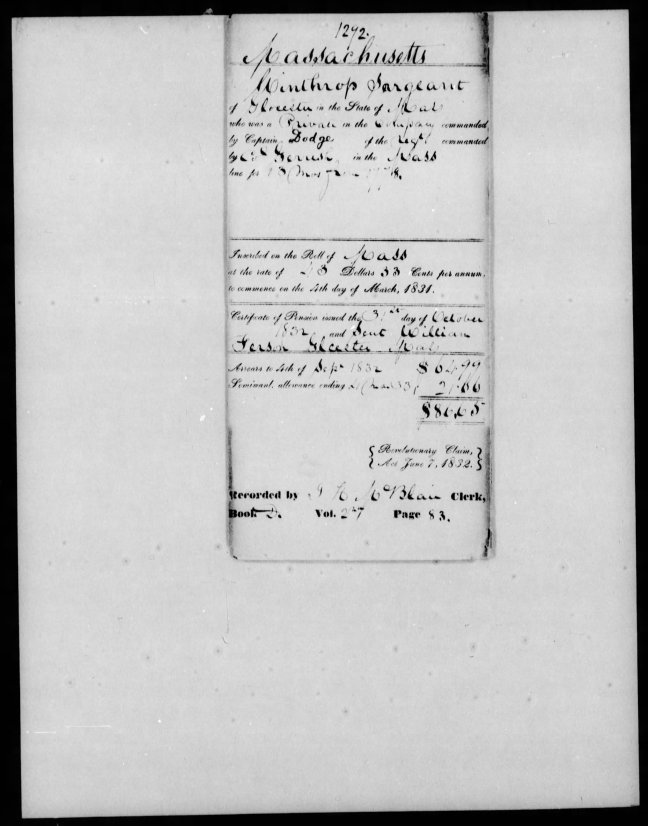 1292.
Massachusetts
Winthrop Sargeant
of Glocester in the State of Mas
who was a Private in the Company commanded
by Captain Dodge of the Regt commanded
by Col Gerrish, in the Mass
line for 
Inscribed on the Roll of Mass
at the rate of 43 Dollars 33 Cents per annum,
to commence on the 4th day of March, 1831.
Certificate of Pension issued the 31st day of October
1832 and Sent William
Glocester Mas
Arrears to 4th of Sept 1832 $64.99
Semi-anl. allowance ending 4 Mar 33, 21.66
$86.65
Revolutionary Claim,
Act June 7, 1832.
Recorded by McBlair Clerk,
Book D. Vol. 2 Page 83.